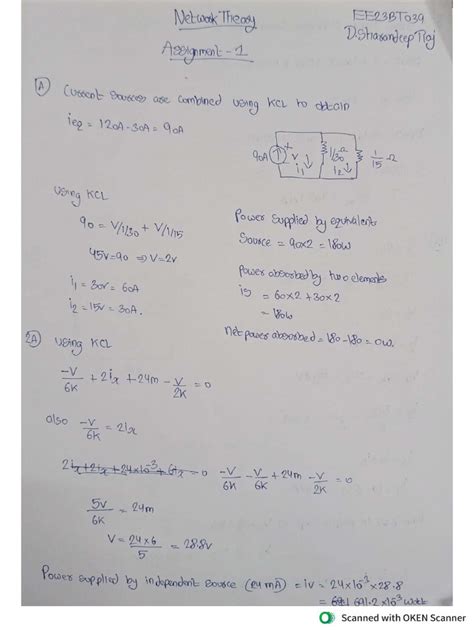 Network Theory
EE23BT039
D.Sharandeep Raj
Assignment - 1
A) Current sources are combined using KCL to obtain
ieq = 120A - 30A = 90A
90A V i1 1/30 Ω i2 1/15 Ω
Using KCL
90 = V/1/30 + V/1/15
45V = 90 ⇒ V = 2V
i1 = 30V = 60A
i2 = 15V = 30A.
Power supplied by equivalent
Source = 90×2 = 180W
Power absorbed by two elements
is = 60×2 + 30×2
= 180W
Net power absorbed = 180 - 180 = 0W.
2A) Using KCL
-V/6K + 2ix + 24m - V/2K = 0
also -V/6K = 2ix
-V/6K - V/6K + 24m - V/2K = 0
5V/6K = 24m
V = 24×6/5 = 28.8V
Power supplied by independent source (24mA) = iV = 24×10⁻³×28.8
= 691.2×10⁻³ Watt
Scanned with OKEN Scanner